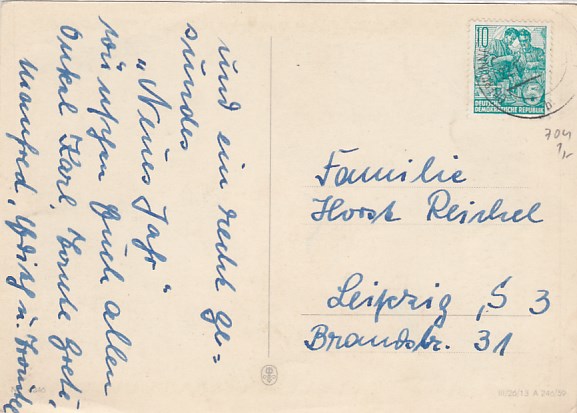 und ein recht ge=
sundes
"Neues Jahr"
wünschen Euch allen
Onkel Karl, Tante Grete,
Manfred, u.
Familie
Horst Reichel
Leipzig, S 3
Brandstr. 31
10
DEUTSCHE
DEMOKRATISCHE REPUBLIK
704
1,-
III/26/13 A 246/59